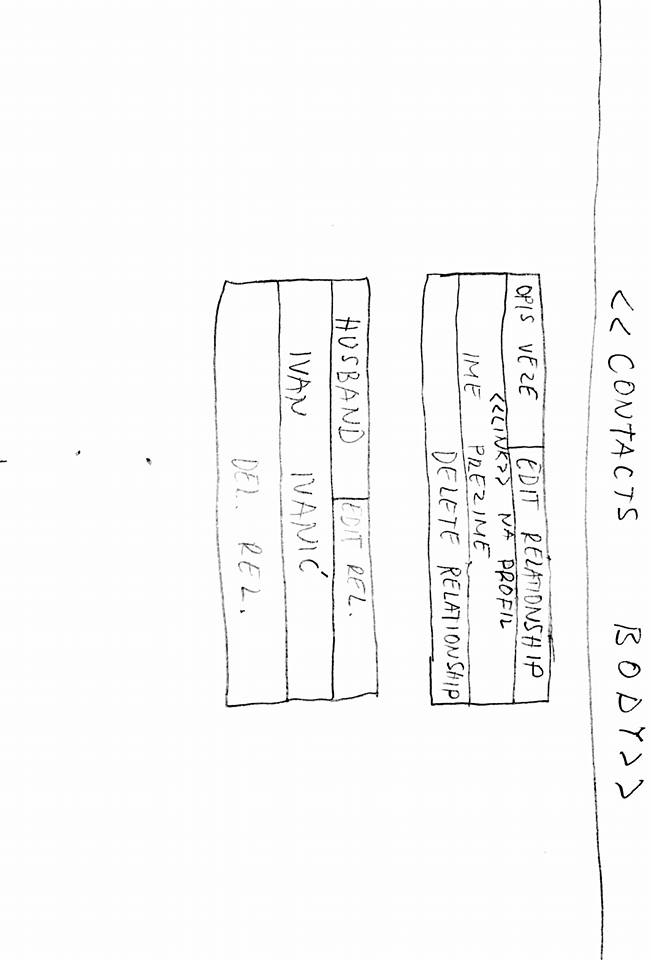 <<CONTACTS BODY>>
OPIS VEZE EDIT RELATIONSHIP
<<LINK>> NA PROFIL
IME PREZIME
DELETE RELATIONSHIP
HUSBAND EDIT REL.
IVAN IVANIĆ
DEL. REL.